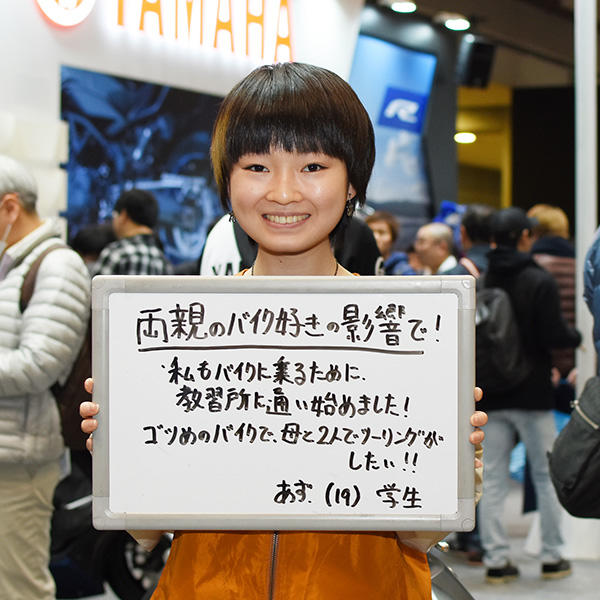 YAMAHA
R
YA
両親のバイク好きの影響で!
・私もバイクに乗るために、
教習所に通い始めました!
ゴツめのバイクで、母と2人でツーリングが
したい!!
あず (19) 学生